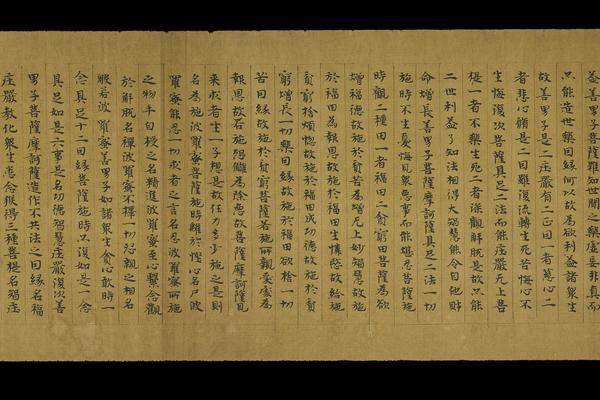 益善男子菩薩雖知世間之樂虛妄非真而
亦能造世樂因緣何以故為欲利益諸眾生
故善男子是二莊嚴有二正因一者慈心二
者悲心脩是二因雖復流轉生死苦海心不
生悔復次菩薩具足二法而能莊嚴无上菩
提一者不樂生死二者深觀解脫是故亦能
二世利益了知法相得大智慧能令自他財
命增長善男子菩薩摩訶薩具足二法一切
施時不生憂悔見眾惡事而能堪忍菩薩施
時觀二種田一者福田二貧窮田菩薩為欲
增福德故施於貧苦為增无上妙智慧故施
於福田為報恩故施於福田生憐愍故給施
貧窮捨煩惱故施於福田成功德故施於貧
窮增長一切樂因緣故施於福田欲捨一切
苦因緣故施於貧窮菩薩若施所親愛處為
報恩故若施怨讎為除惡故菩薩摩訶薩見
來求者生一子想是故任力多少施之是則
名為施波羅蜜菩薩施時離於慳心名尸波
羅蜜能忍一切求者之言名忍波羅蜜所施
之物手自授之名精進波羅蜜至心繫念觀
於解脫名禪波羅蜜不擇一切怨親之相名
般若波羅蜜善男子如諸眾生貪心殺時一
念具足十二因緣菩薩施時亦復如是一念
具足如是六事是名功德智慧莊嚴復次善
男子菩薩摩訶薩造作不共法之因緣名福
莊嚴教化眾生悉令獲得三種菩提名智莊